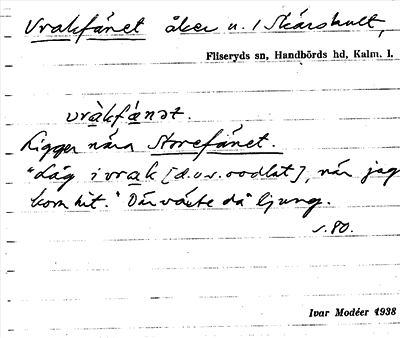 Vrakfänet åker u. / Skärshult,
Fliseryds sn, Handbörds hd, Kalm. l.
vràkfá̤nət.
Ligger nära Storefänet.
"Låg i vrak [d.v.s. oodlat], när jag
kom hit." Där växte då ljung.
s. 80.
Ivar Modéer 1938